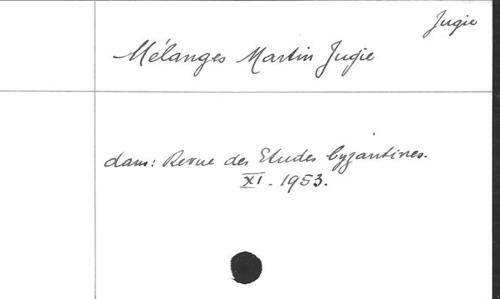 Jugie
Mélanges Martin Jugie
dans: Revue des Etudes byzantines.
XI - 1953.